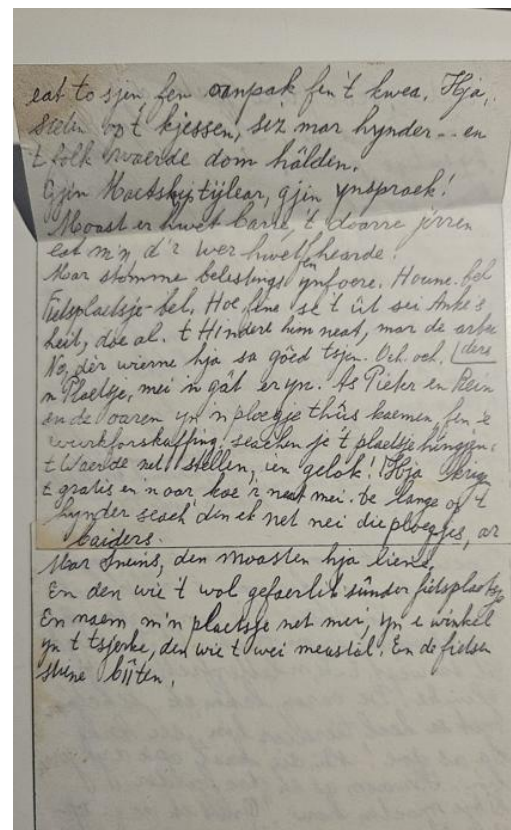 eat to sjen fen oanpak fen 't kwea. Hja,
sieten op 't kjessen, siz mar hynder -- en
't folk waerde dom hâlden.
Gjin Maetskiptijlear, gjin ynspraek!
Moast er hwet barre, 't doarre jirren
eat m'n, d'r wer hwet hearde.
Mar stomme belestings en ynfoere. Houne-bel
Fietsplaetsje-bel. Hoe fine se 't út sei Anke's
heit, doe al. 't Hindere him neat, mar de arbe
No, dêr wierne hja sa goed tsjen. Och. och. ders
'n Plaetsje, mei 'n gat er yn. As Pieter en Rein
en de oaren yn 'n ploegje thús kaemen, fen 'e
wurkforskaffing, seachen je 't plaetsje hingjen.
't Waerde net stellen, ien gelok! Hja
't gratis en 'n oar koe 'r neat mei. De lange op 't
hynder seach den ek net nei die ploegjes, ar
baiders.
Mar Sneins, den moasten hja liene,
En den wie 't wol gefaerlik sûnder fietsplaetsje
En naem m'n plaetsje net mei, yn e winkel
yn 't tsjerke, den wie 't wei meastal. En de fietsen
stiene bûten.